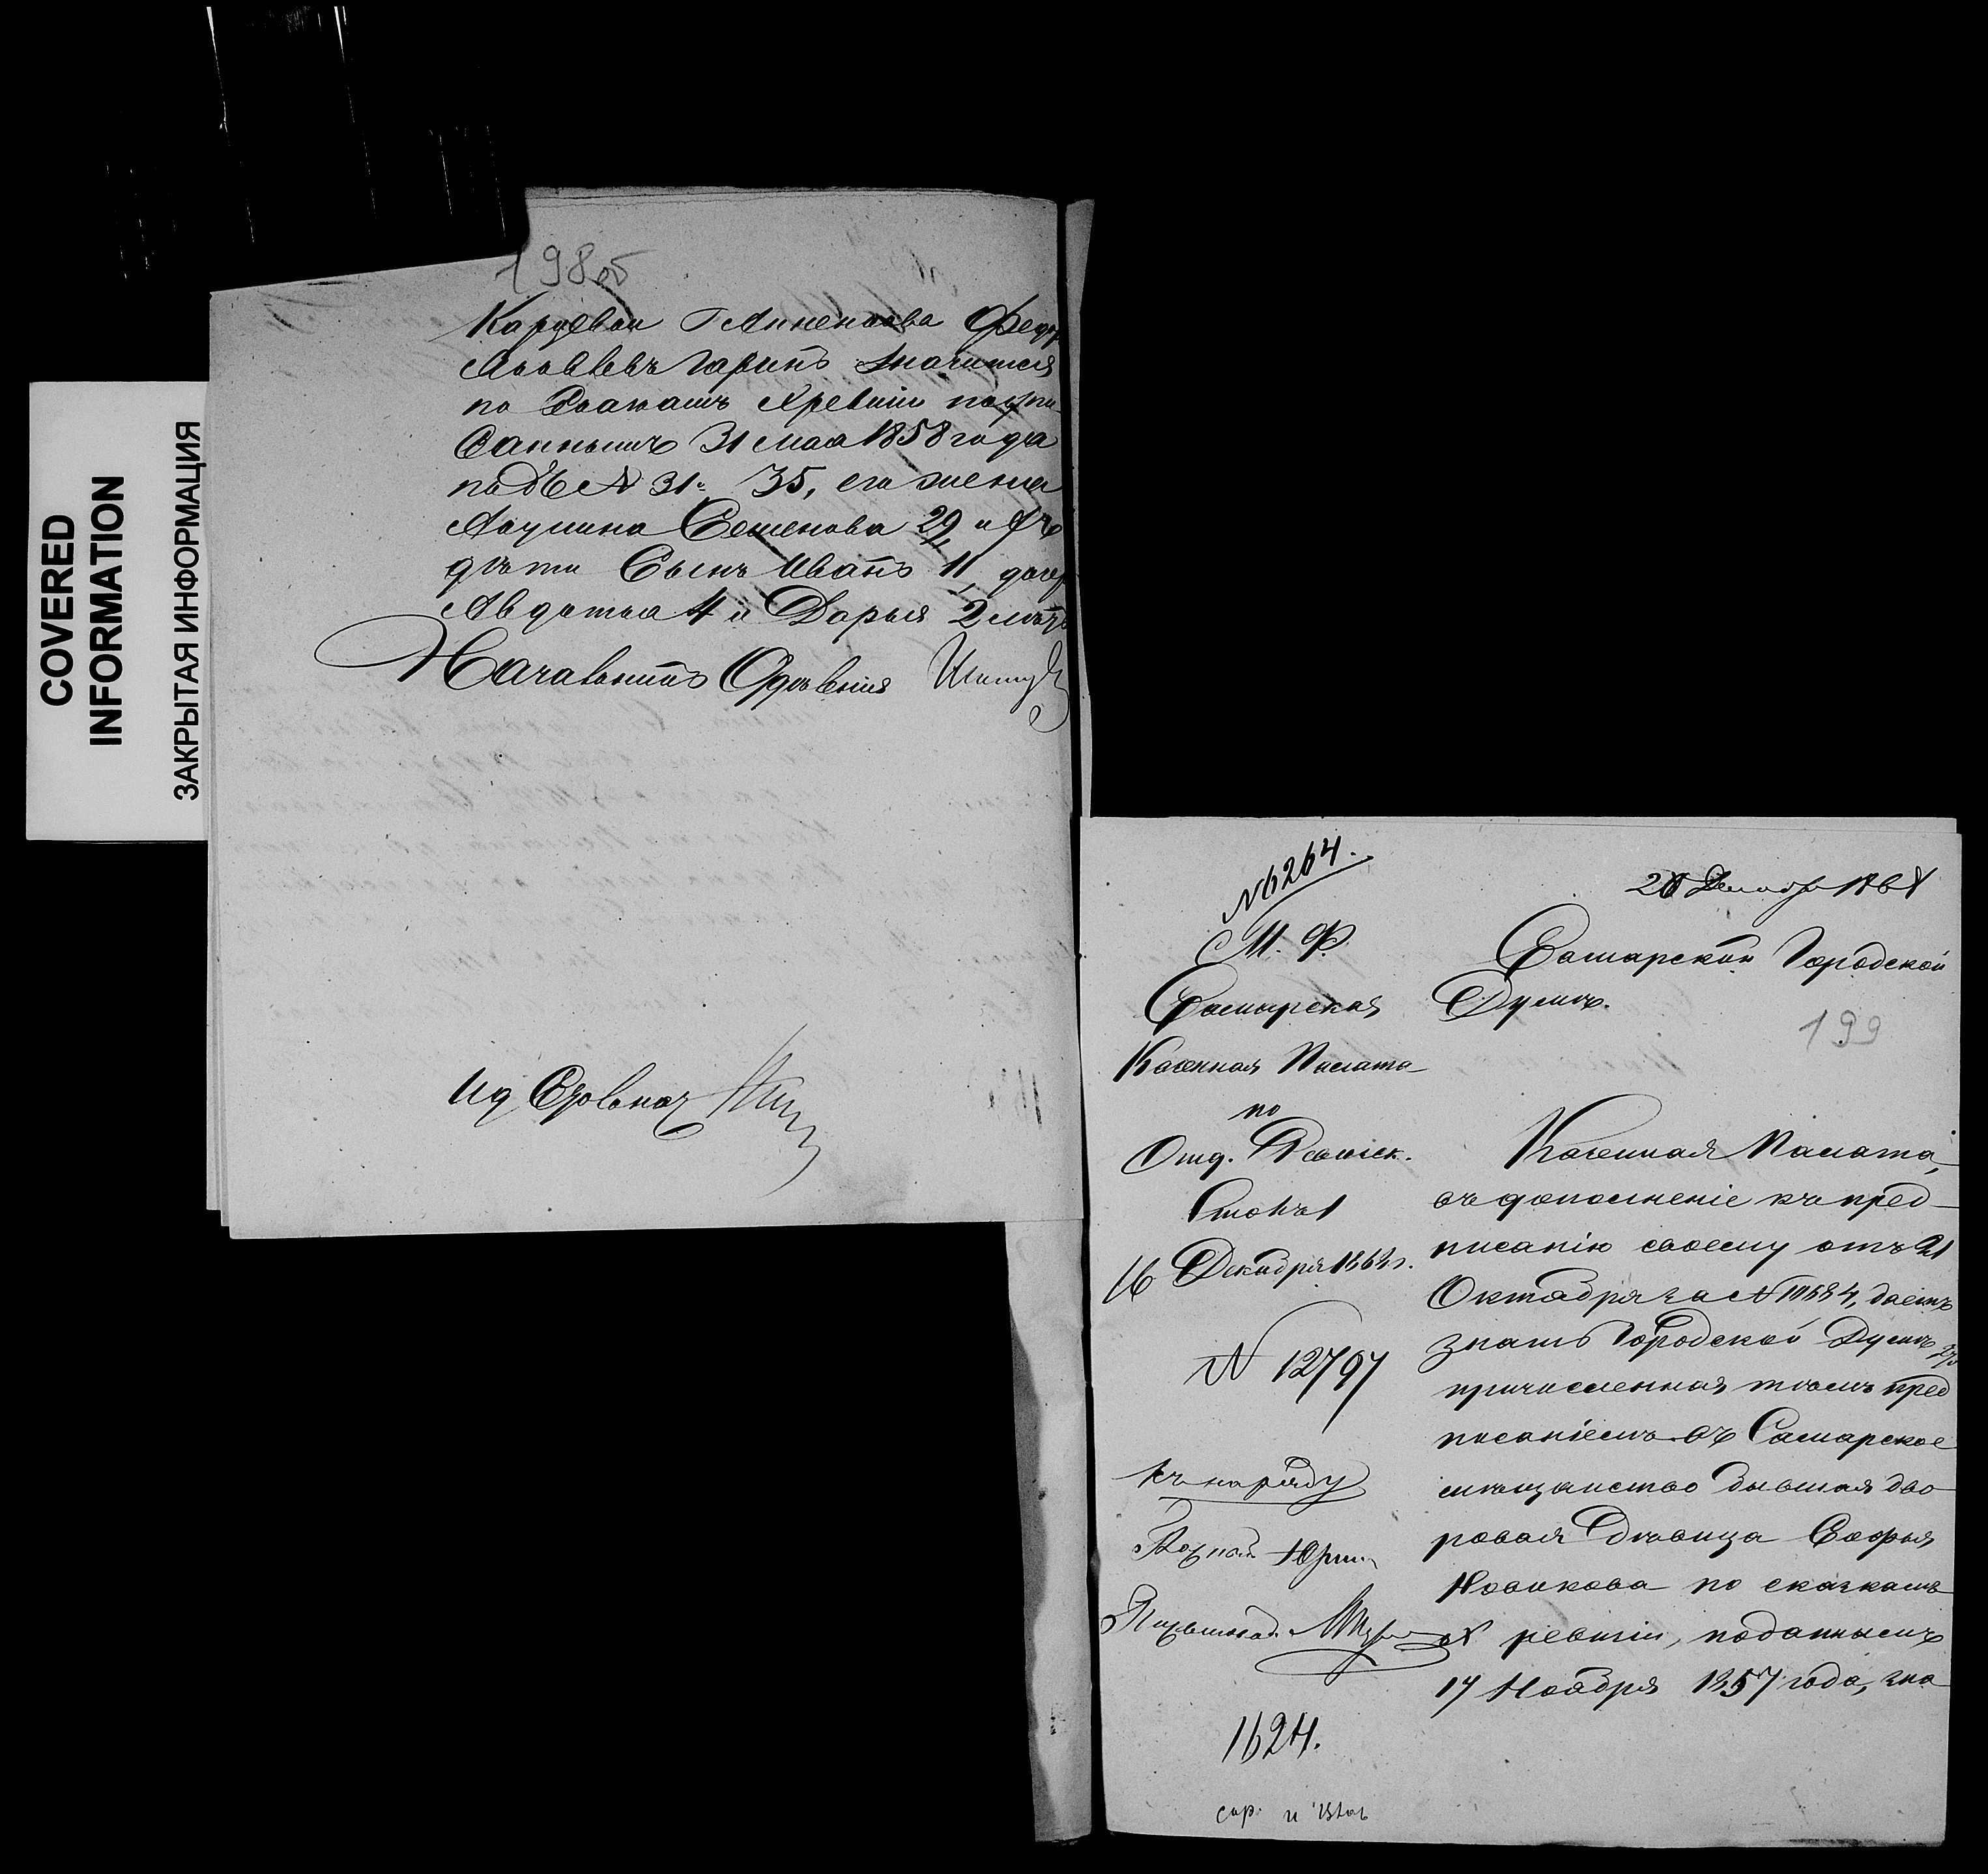 COVERED
INFORMATION
ЗАКРЫТАЯ ИНФОРМАЦИЯ
198об
Аненкова Федор
Яковлевъ Гаринъ значится
по Сказкамъ Хревизiи
31 мая 1858 года
подъ № 31. 35, его жена
Акулина Семенова 29 и ихъ
дѣти Сынъ Иванъ 11, дочер
Авдотья 4 и Дарья 2 лѣтъ
Начальникъ Отдѣленiя
Ид Столонач
№6264.
Декабр 186
М. Ф.
Самарская
Казенная Палата
по
Отд.
Столъ 1
16 Декабря 186
№ 12797
къ наряду
1624.
Самарской Городской
Думѣ.
199
Казенная Палата,
въ дополненiе къ пред-
писанiю своему отъ 21
Октября за № 10684, даетъ
знать Городской Думѣ, что
причисленная тѣмъ пред
писанiемъ въ Самарское
мѣщанство бывшая дво
ровая дѣвица Софья
Новикова по сказкамъ
X ревизiи, поданнымъ
17 Ноября 1857 года, зна